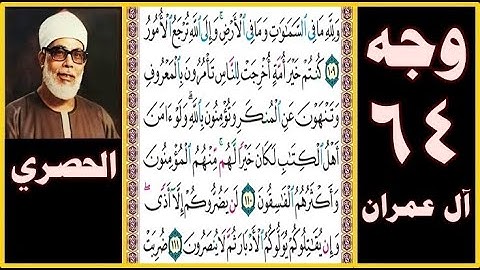 وجه
٦٤
آل عمران
وَلِلَّهِ مَا فِي السَّمَٰوَٰتِ وَمَا فِي الْأَرْضِ ۚ وَإِلَى اللَّهِ تُرْجَعُ الْأُمُورُ
١٠٩ كُنتُمْ خَيْرَ أُمَّةٍ أُخْرِجَتْ لِلنَّاسِ تَأْمُرُونَ بِالْمَعْرُوفِ
وَتَنْهَوْنَ عَنِ الْمُنكَرِ وَتُؤْمِنُونَ بِاللَّهِ ۗ وَلَوْ ءَامَنَ
أَهْلُ الْكِتَٰبِ لَكَانَ خَيْرًا لَّهُم ۚ مِّنْهُمُ الْمُؤْمِنُونَ
وَأَكْثَرُهُمُ الْفَٰسِقُونَ ١١٠ لَن يَضُرُّوكُمْ إِلَّا أَذًى ۖ
وَإِن يُقَٰتِلُوكُمْ يُوَلُّوكُمُ الْأَدْبَارَ ثُمَّ لَا يُنصَرُونَ ١١١ ضُرِبَتْ
الحصري